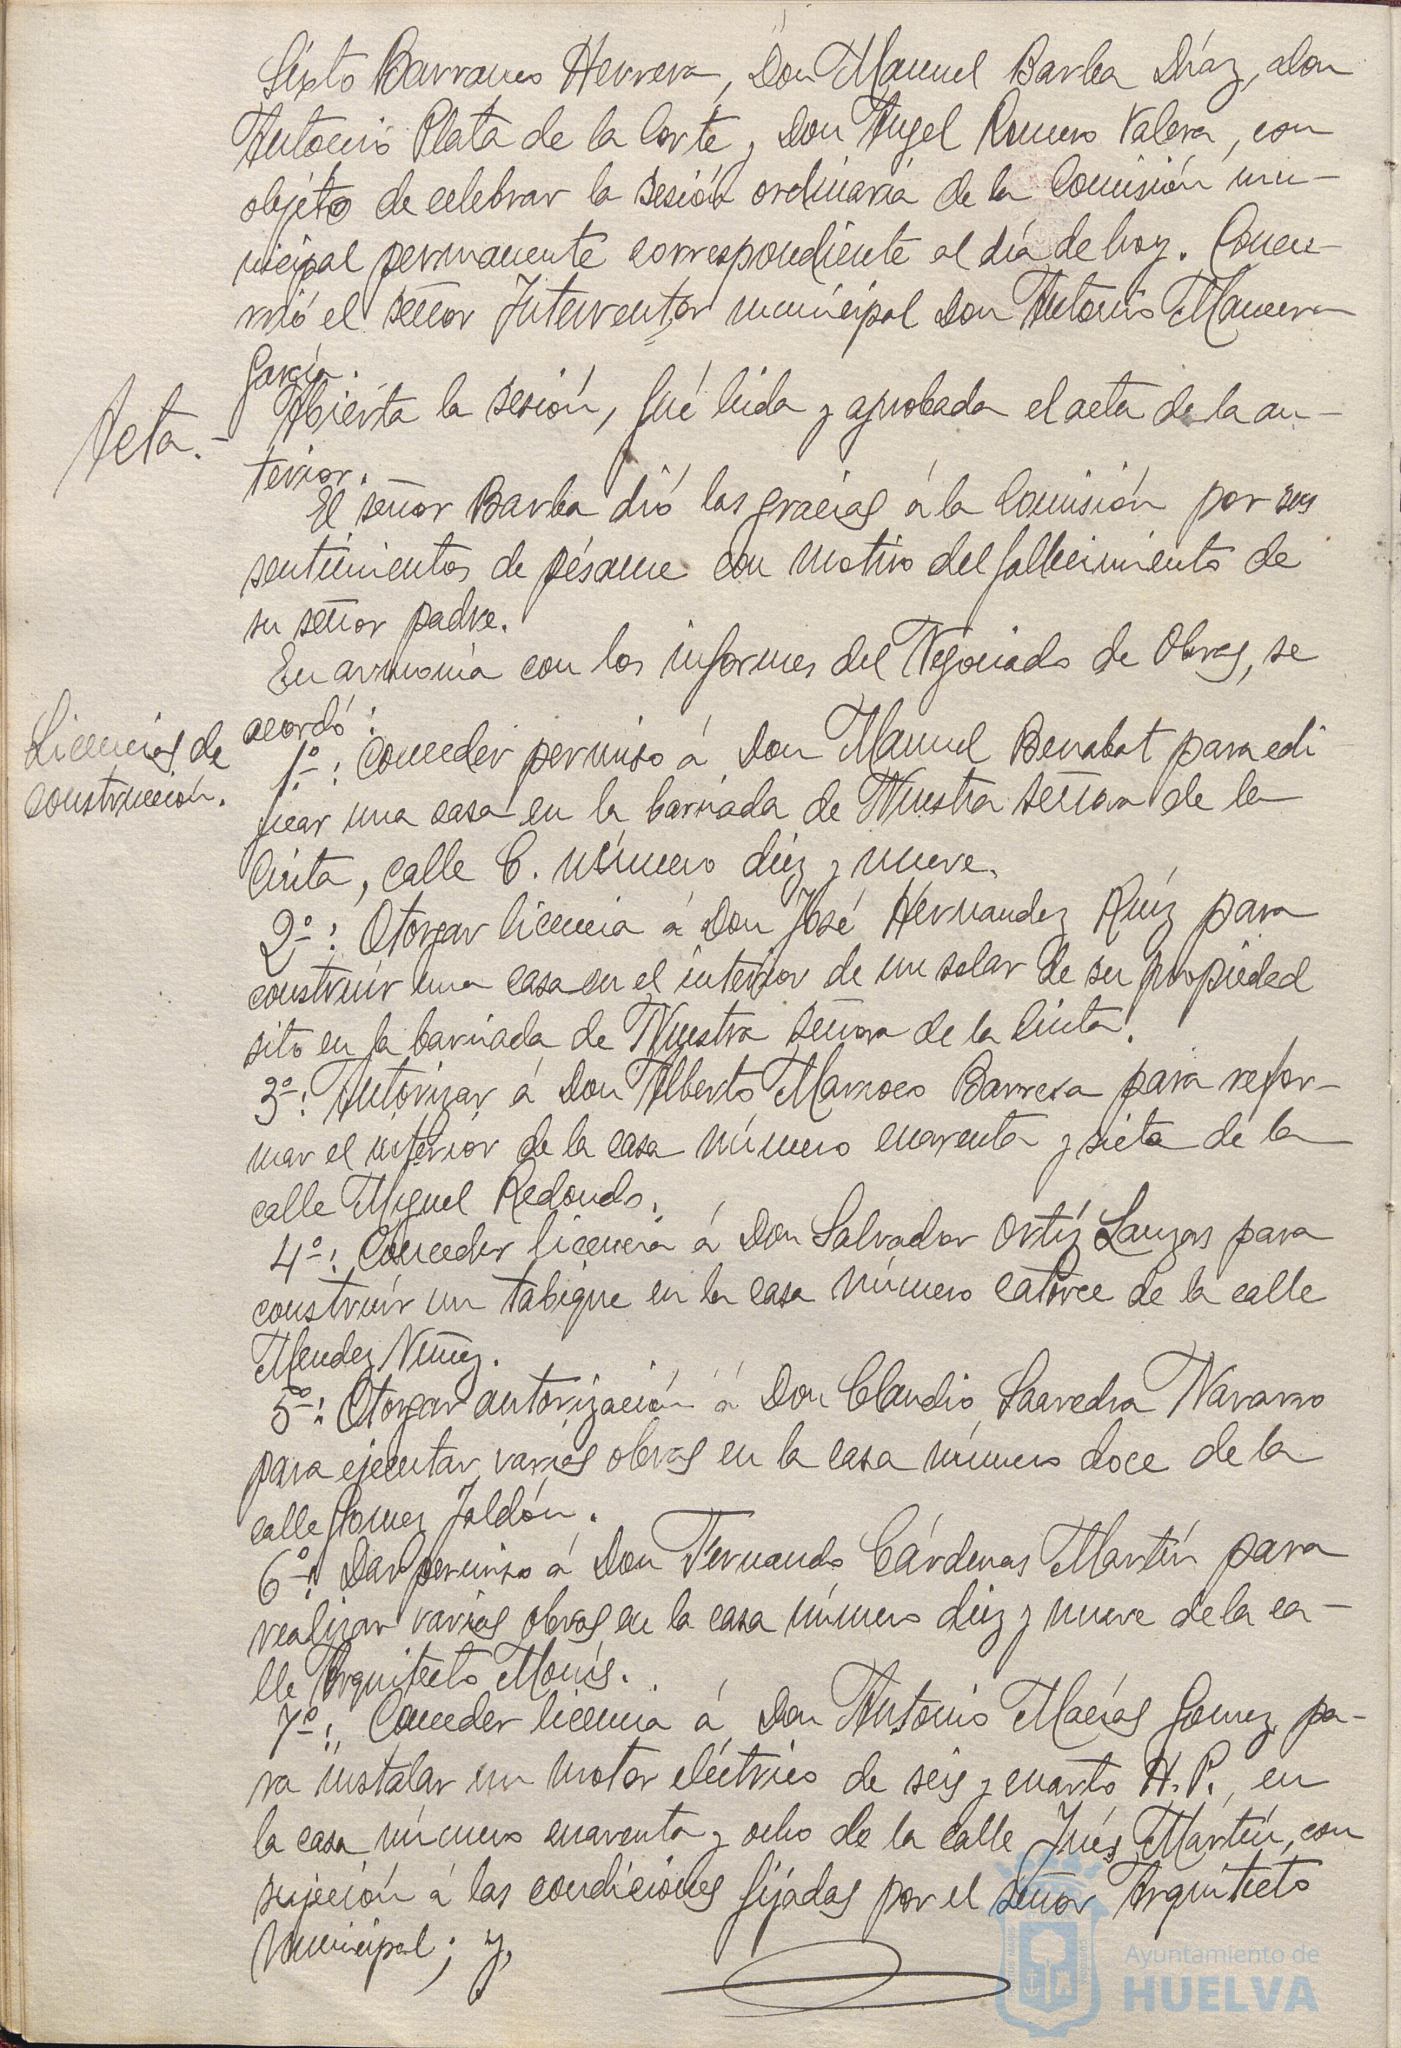 Sixto Barranco Herrera, Don Manuel Barba Díaz, don
Antonio Plata de la Corte y Don Angel Romero Valera, con
objeto de celebrar la sesión ordinaria de la Comisión mu-
nicipal permanente correspondiente al día de hoy. Concu-
rrió el señor Interventor municipal Don Antonio Mancera
García.
Acta.-
Abierta la sesión, fué leida y aprobada el acta de la an-
terior.
El señor Barba dió las gracias á la Comisión por sus
sentimientos de pésame con motivo del fallecimiento de
su señor padre.
En armonía con los informes del Negociado de Obras, se
acordó:
Licencias de
construcción.
1º: Conceder permiso á Don Manuel Benabat para edi
ficar una casa en la barriada de Nuestra señora de la
Cinta, calle C. número diez y nueve.
2º: Otorgar licencia á Don José Hernandez Ruíz para
construir una casa en el interior de un solar de su propiedad
sito en la barriada de Nuestra señora de la Cinta.
3º: Autorizar á Don Alberto Marroco Barrera para refor-
mar el interior de la casa número cuarenta y siete de la
calle Miguel Redondo.
4º: Conceder licencia á Don Salvador Ortíz Lanzas para
construir un tabique en la casa número catorce de la calle
Mendez Nuñez.
5º: Otorgar autorización á Don Claudio Saavedra Navarro
para ejecutar varias obras en la casa número doce de la
calle Gomez Jaldón.
6º: Dar permiso á Don Fernando Cárdenas Martín para
realizar varias obras en la casa número diez y nueve de la ca-
lle Arquitecto Monís.
7º: Conceder licencia á Don Antonio Macías Gomez pa-
ra instalar un motor eléctrico de seis y cuarto H.P., en
la casa número cuarenta y ocho de la calle Inés Martín, con
sujeción á las condiciones fijadas por el señor Arquitecto
Municipal; y,
Ayuntamiento de
HUELVA